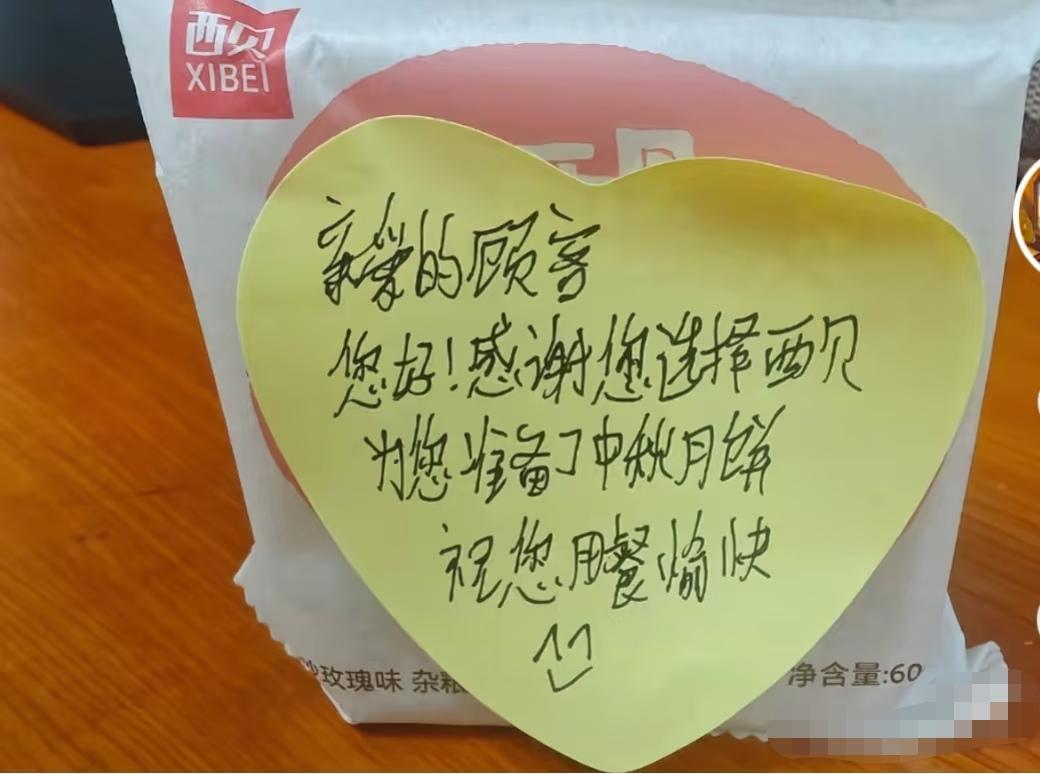 西贝
XIBEI
亲爱的顾客
您好!感谢您选择西贝
为您准备了中秋月饼
祝您用餐愉快
玫瑰味 杂粮
净含量:60